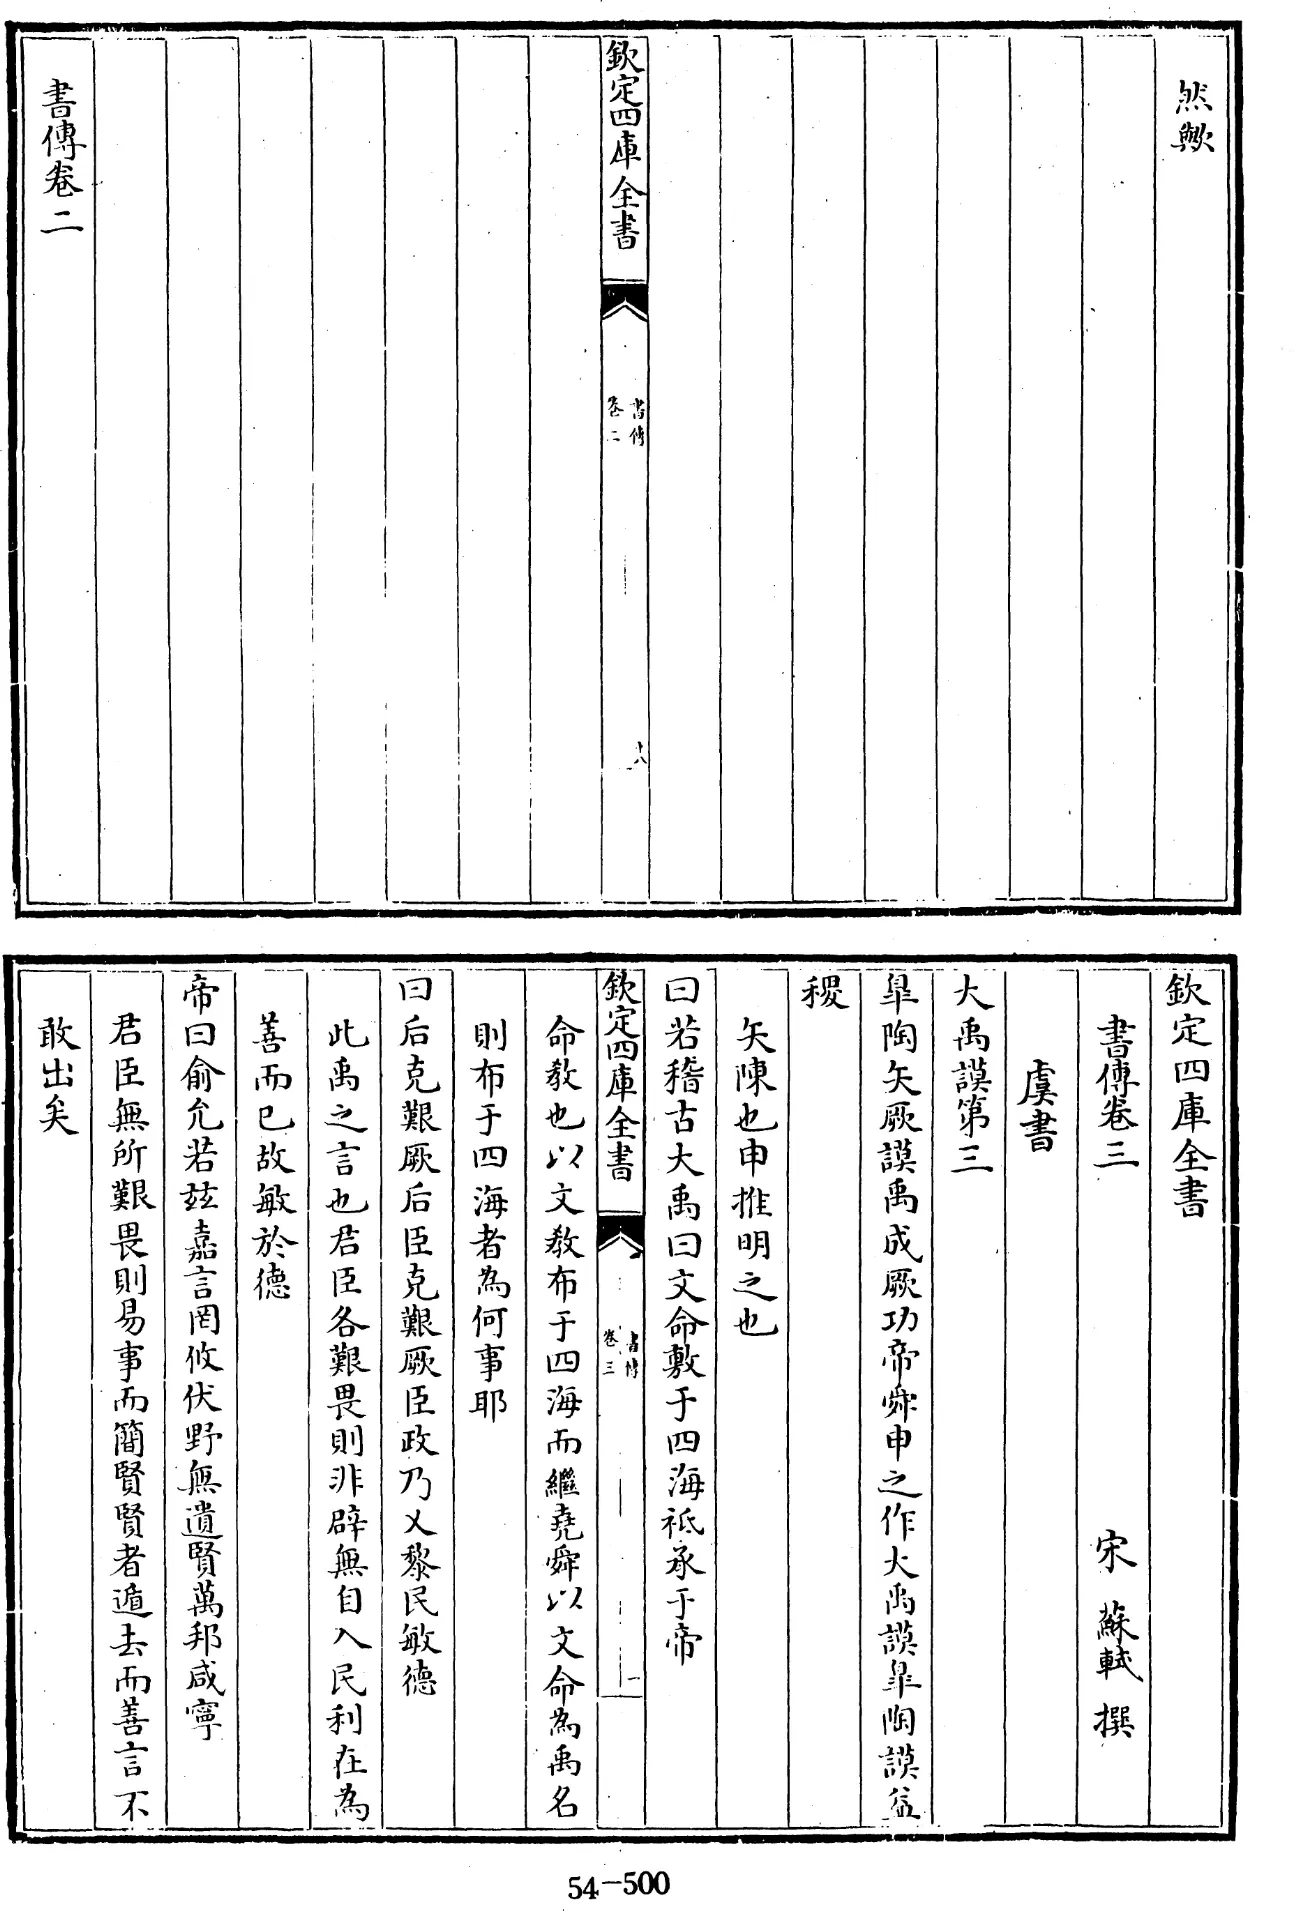 然歟
欽定四庫全書
書傳
卷二
十八
書傳卷二
欽定四庫全書
書傳卷三
宋 蘇軾 撰
虞書
大禹謨第三
臯陶矢厥謨禹成厥功帝舜申之作大禹謨臯陶謨益
稷
矢陳也申推明之也
曰若稽古大禹曰文命敷于四海祗承于帝
欽定四庫全書
書傳
卷三
一
命敎也以文敎布于四海而繼堯舜以文命為禹名
則布于四海者為何事耶
曰后克艱厥后臣克艱厥臣政乃乂黎民敏德
此禹之言也君臣各艱畏則非辟無自入民利在為
善而已故敏於德
帝曰俞允若玆嘉言罔攸伏野無遺賢萬邦咸寧
君臣無所艱畏則易事而簡賢賢者遁去而善言不
敢出矣
54-500